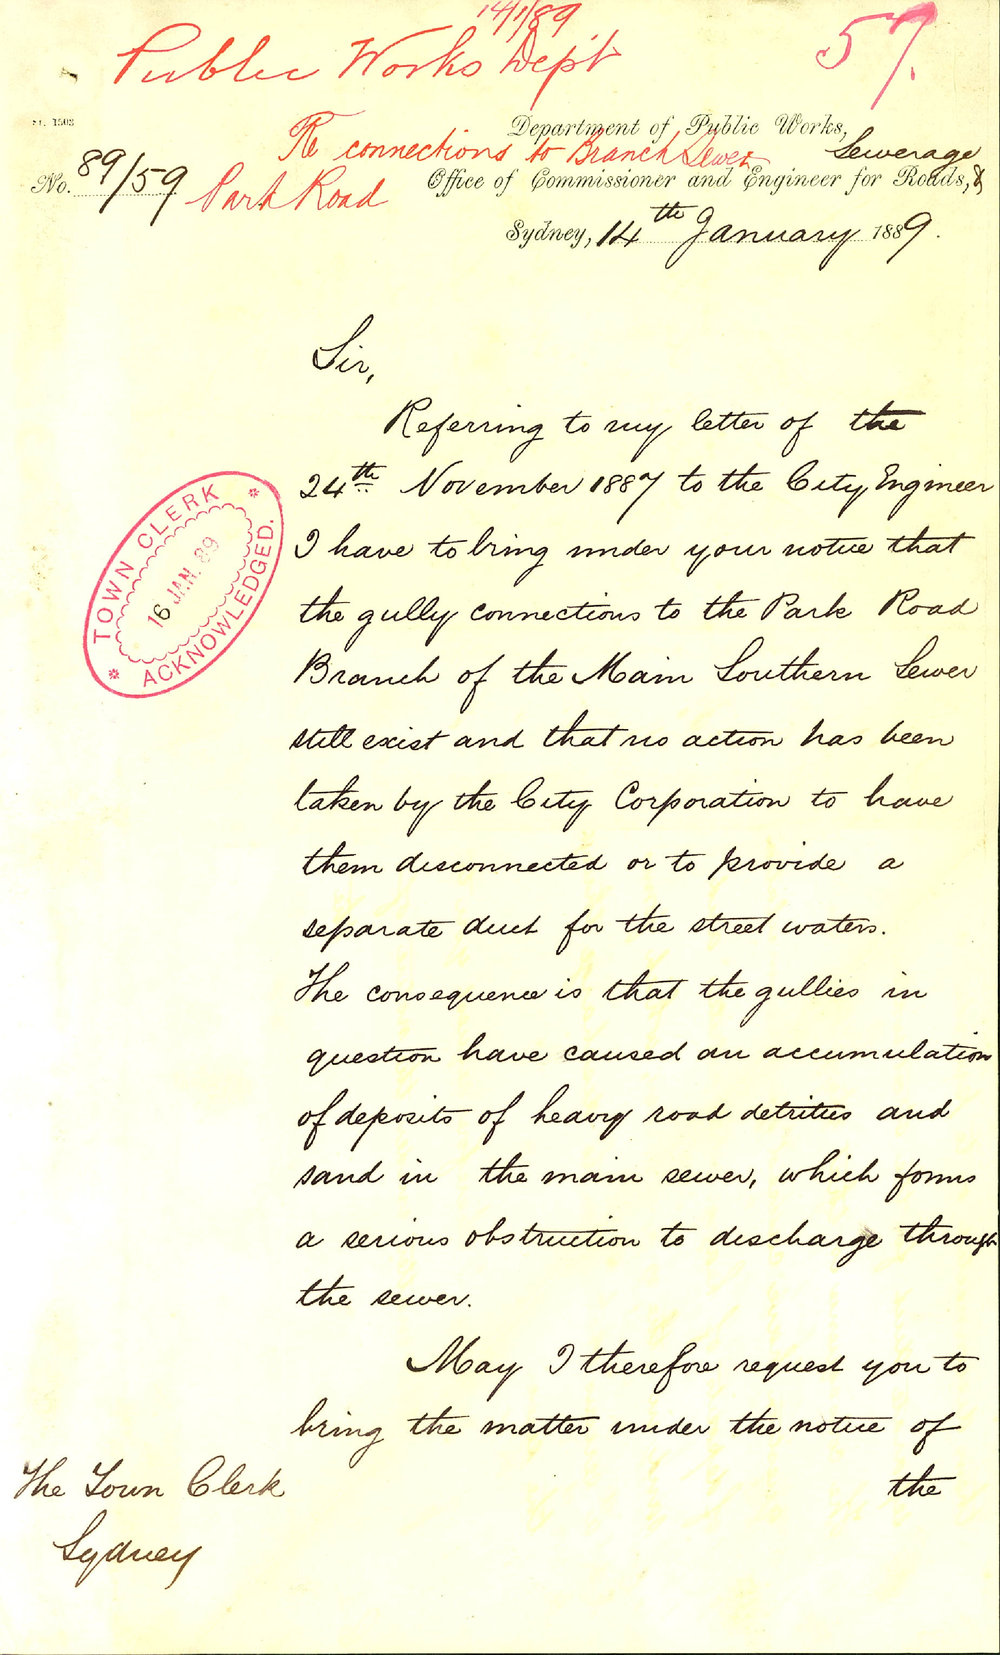 14/1/89
Public Works Dept
57.
Department of Public Works,
Re connections to Branch Sewer
Sewerage
No. 89/59
Park Road
Office of Commissioner and Engineer for Roads, &
Sydney, 14th January 1889.
Sir,
Referring to my letter of the
24th November 1887 to the City Engineer
I have to bring under your notice that
the gully connections to the Park Road
Branch of the Main Southern Sewer
still exist and that no action has been
taken by the City Corporation to have
them disconnected or to provide a
separate duct for the street waters.
The consequence is that the gullies in
question have caused an accumulation
of deposits of heavy road detritus and
sand in the main sewer, which forms
a serious obstruction to discharge through
the sewer.
May I therefore request you to
bring the matter under the notice of
the
The Town Clerk
Sydney
TOWN CLERK
16 JAN. 89
ACKNOWLEDGED.